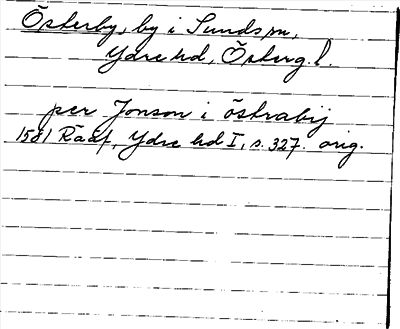 Österby, by i Sunds sn,
Ydre hd, Österg. l.
per Jonson i östrabÿ
1581 Rääf, Ydre hd I, s. 327. orig.